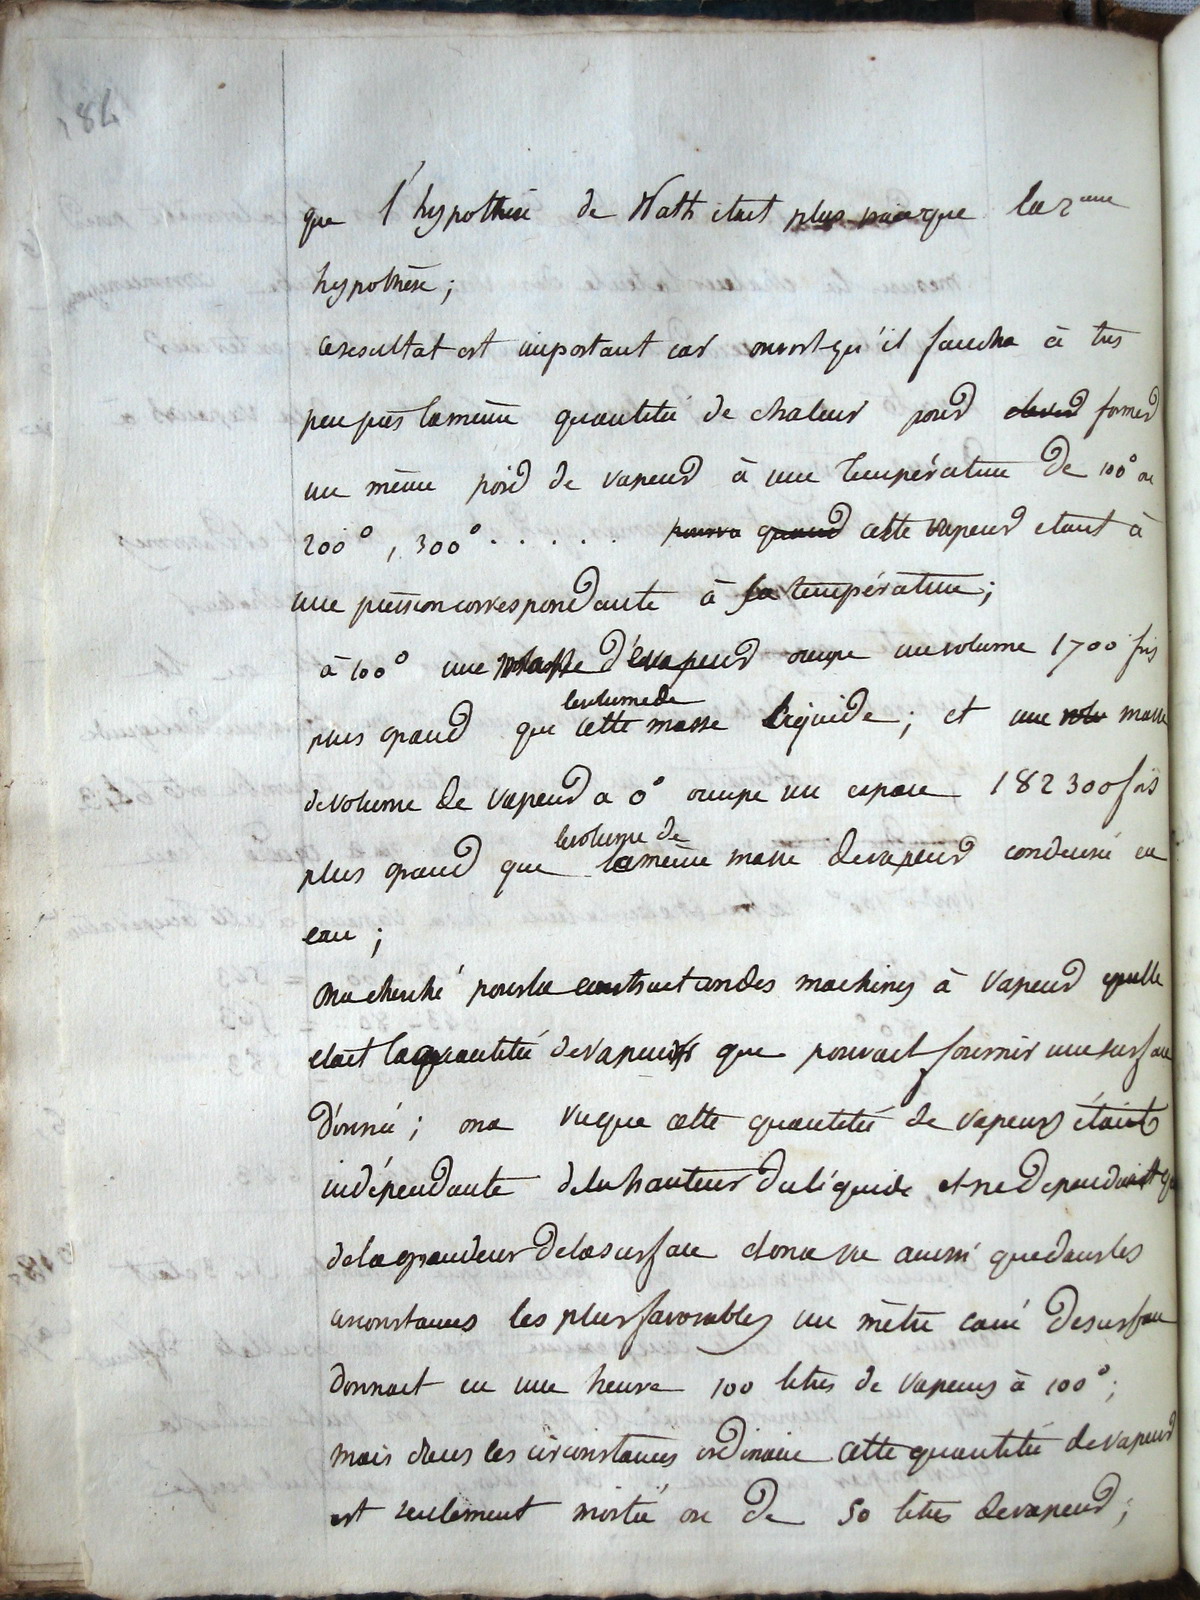 184
que l'hypothèse de Watt etait plus que la 2eme
hypothèse;
ce resultat est important car on voit qu'il faudra à tres
peu près la même quantitée de chaleur pour elever former
un même poid de vapeur à une température de 100° ou
200°, 300° . . . . . . pourvu quand cette vapeur etant à
une pression correspondante à sa température;
à 100° une masse d'evapeur occupe un volume 1700 fois
le volume de
plus grand que cette masse liquide; et une volu masse
de volume de vapeur a 0° occupe un espace 182300 fois
le volume de
plus grand que la même masse de vapeur condensé en
eau;
On a cherché pour la construction des machines à vapeur quelle
etait la quantitée de vapeur que pouvait fournir une surface
donnée; on a vu que cette quantitée de vapeur était
indépendante de la hauteur du liquide et ne dependait que
de la grandeur de la surface et on a vu aussi que dans les
circonstances les plus favorables un mètre carré de surface
donnait en une heure 100 litres de vapeurs à 100°;
mais dans les circonstances ordinaire cette quantitée de vapeur
est seulement moitié ou de 50 litres de vapeur;